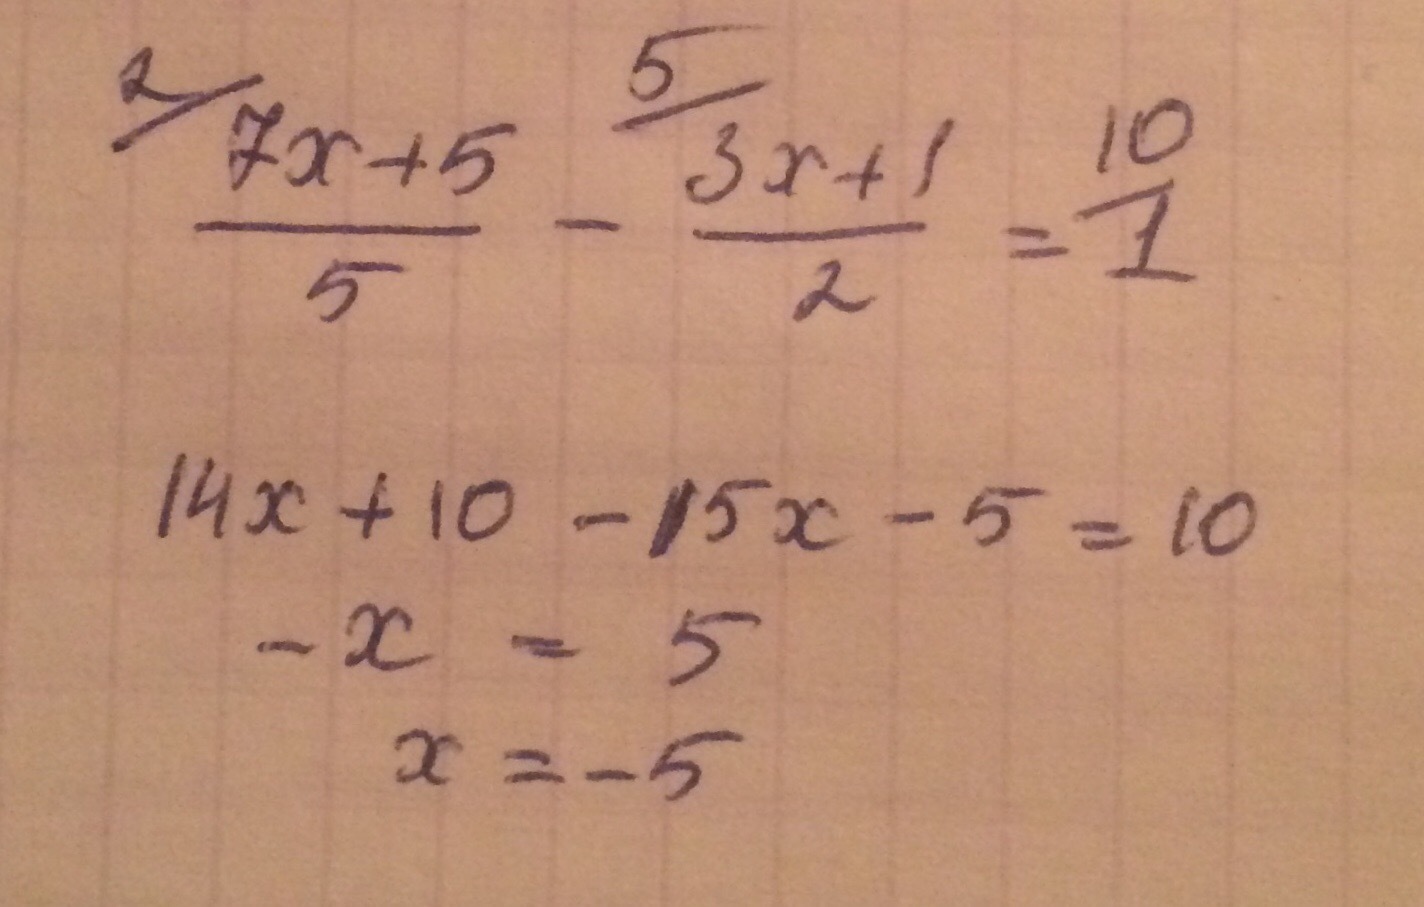 2/ 7x+5 / 5 - 5/ 3x+1 / 2 = 10/ 1
14x + 10 - 15x - 5 = 10
- x = 5
x = - 5